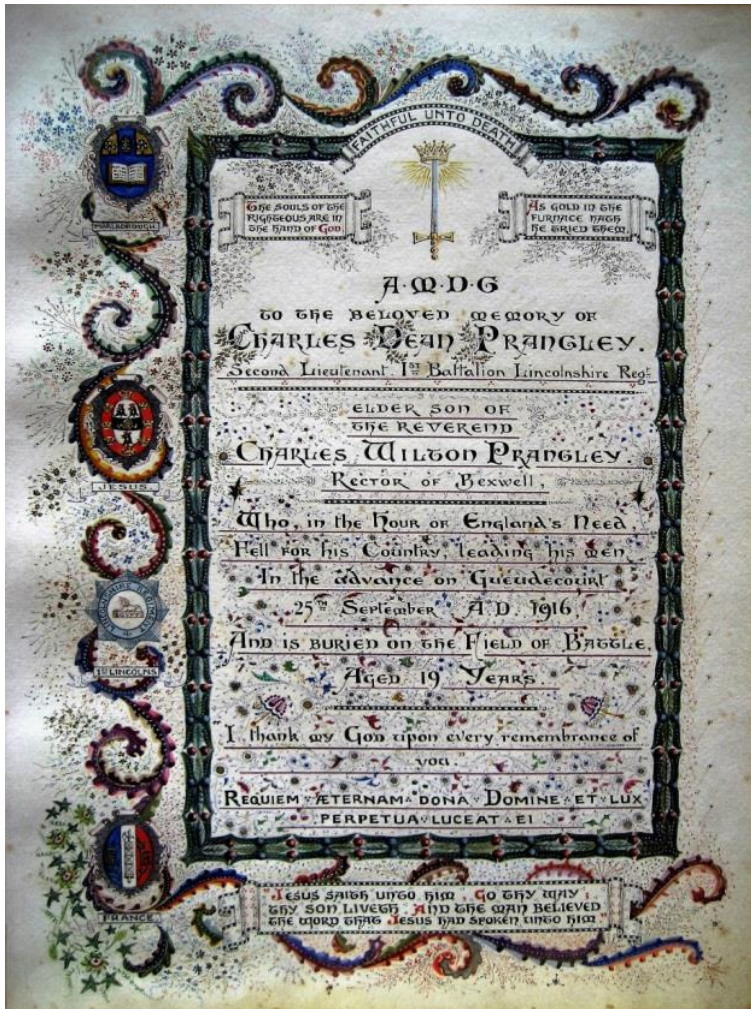 FAITHFUL UNTO DEATH
The souls of the
righteous are in
the hand of God
As gold in the
furnace hath
he tried them.
A·M·D·G
to the beloved memory of
Charles Dean Prangley.
Second Lieutenant 1st Battalion Lincolnshire Regt
elder son of
the Reverend
Charles Wilton Prangley.
Rector of Bexwell,
Who, in the Hour of England's Need,
Fell for his Country, leading his men
In the advance on Gueudecourt
25th September A.D. 1916
And is buried on the Field of Battle.
Aged 19 Years
I thank my God upon every remembrance of
you"
REQUIEM ÆTERNAM DONA DOMINE ET LUX
PERPETUA LUCEAT EI
Jesus saith unto him, Go thy way,
thy son liveth. And the man believed
the word that Jesus had spoken unto him
MARLBOROUGH
JESUS
LINCOLNSHIRE REGIMENT
1st LINCOLNS
FRANCE